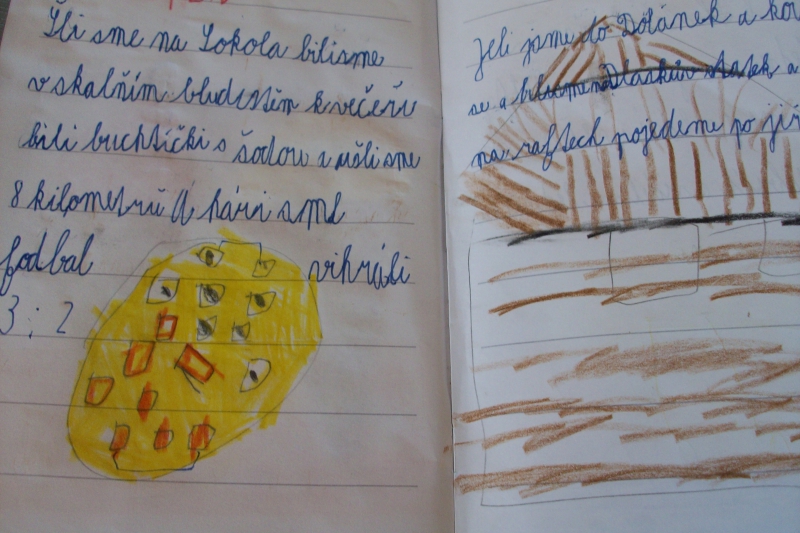 Šli sme na Sokola bilisme
v skalňím bludištěm k večeřu
bili buchtički s šodou a ušli sme
8 kilometrů A hári sme
fodbal vihráli
3 : 2
Jeli jsme do Dolánek a
se a na Dlaskův statek a
na raftech pojedeme po